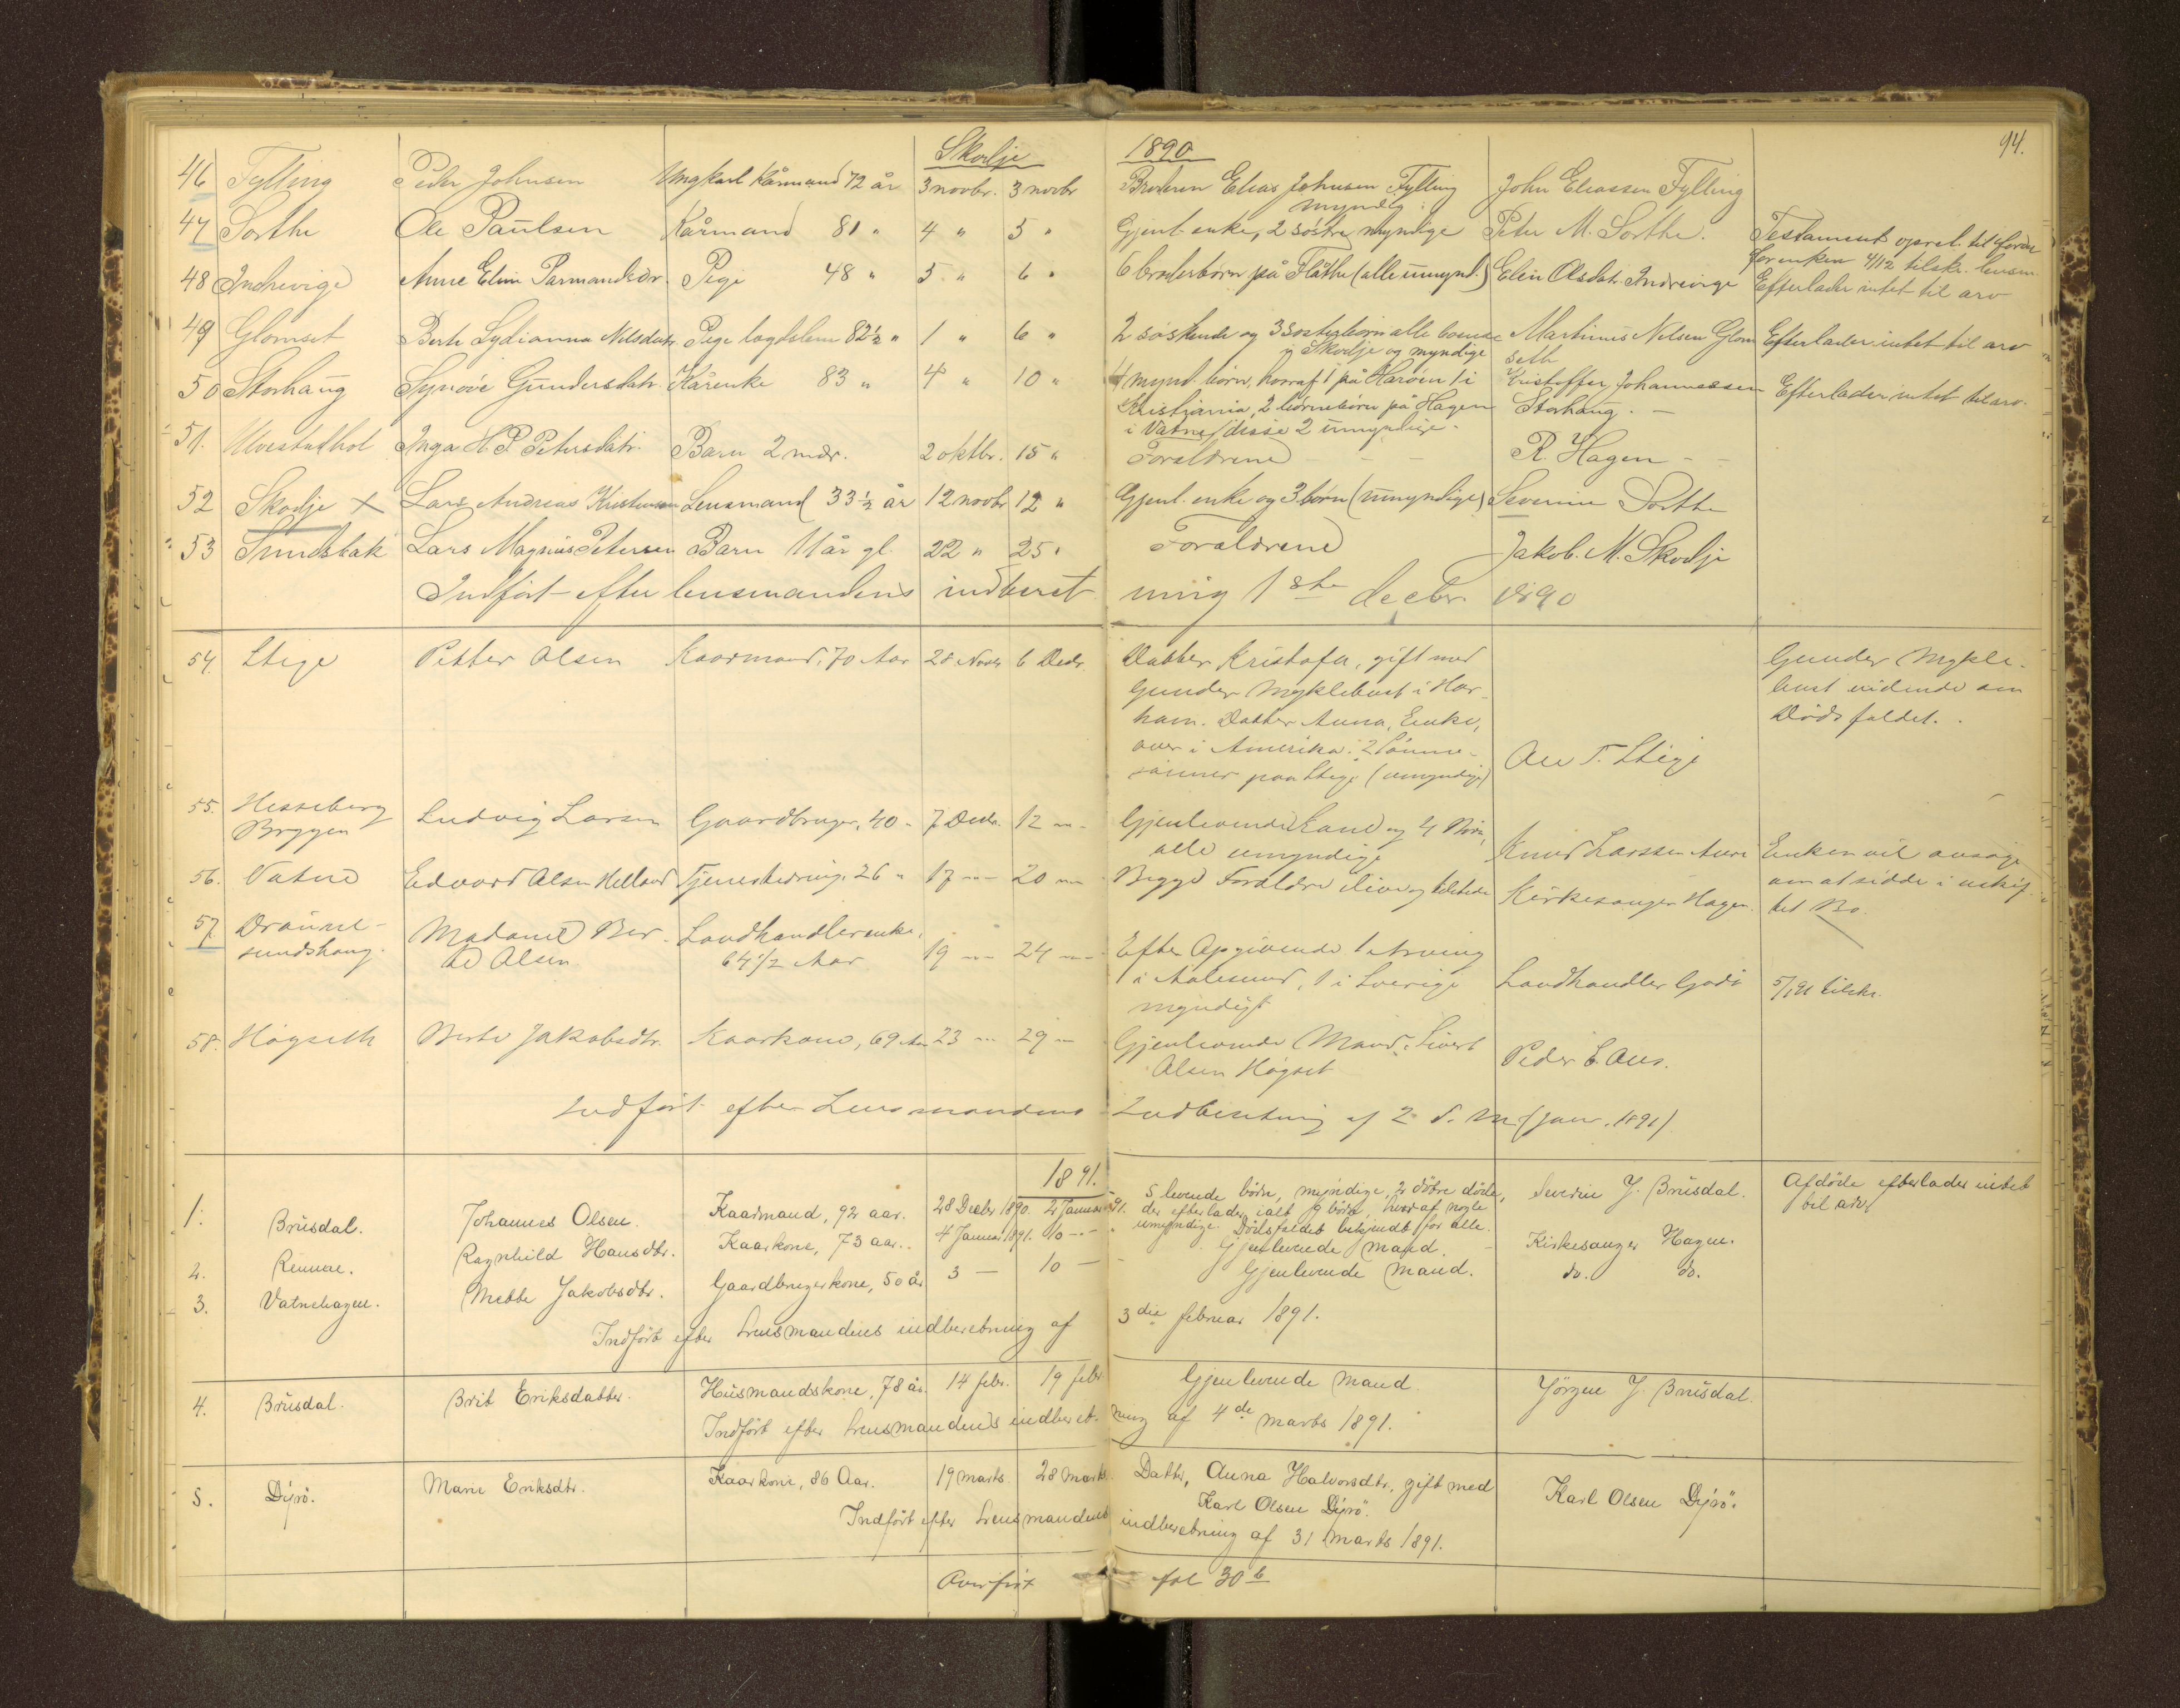 Skodje 1890 94.
46 Fylling Peder Johnsen Ungkarl Kårmand 72 år 3 novbr. 3 novbr Broderen Elias Johnsen Fylling John Eliassen Fylling
myndig.
47 Sorthe Ole Paulsen Kårmand 81 " 4 " 5 " Gjenl. enke, 2 søstre myndige Peter M. Sorthe. Testament opret. til fordel
for enken 4/12 tilskr. lensm.
48 Indrevige Anne Elen Parmandsdr. Pige 48 " 5 " 6 " 6 broderbørn på Flåthe (alle umynd.) Elen Olsdatr. Indrevige Efterlader intet til arv
49 Glomset Berte Lydianna Nilsdatr. Pige lægdslem 82½ " 1 " 6 " 2 søskende og 3 søsterbørn alle boende Martinus Nilsen Glom Efterlader intet til arv
i Skodje og myndige seth
50 Storhaug Synøve Gundersdatr. Kårenke 83 " 4 " 10 " 4 mynd. børn, hvoraf 1 på Harøen 1 i Kristoffer Johannessen Efterlader intet til arv.
Kristiania, 2 børnebørn på Hagen Storhaug. -
i Vatne/disse 2 umyndige.
51. Ulvestadhol Inga H. P. Petersdatr. Barn 2 mdr. 2 oktbr. 15 " Forældrene - - R. Hagen - -
52 Skodje x Lars Andreas Kristensen Lensmand 33½ år 12 novbr 12 " Gjenl. enke og 3 børn (umyndige) Severin Sorthe
53 Smidsbak Lars Magnus Petersen Barn 11 år gl. 22 " 25 " Forældrene Jakob. M. Skodje
Indført efter lensmandens indberet ning 1ste decbr. 1890
54. Stige Petter Olsen Kaarmand, 70 Aar 28 Novbr 6 Decbr. Datter Kristofa, gift med Gunder Mykle-
Gunder Myklebust i Har- bust vidende om
ham. Datter Anna, Enke, Dødsfaldet.
over i Amerika. 2 Sønne-
sønner paa Stige (umyndige) Ole T. Stige
55. Hesseberg Ludvig Larsen Gaardbruger, 40 - 7 Decbr. 12 - Gjenlevende Kone og 4 Børn,
Bryggen alle umyndige Knud Larssen Aure Enken vil ansøge
56. Vatne Edvard Olsen Helland Tjenestedreng, 26 " 17 - 20 - Begge Forældre ilive og tilstede Kirkesanger Hagen. om at sidde i uskif-
tet Bo.
57. Draune- Madame Ber- Landhandlerenke,
sundshaug. the Olsen 64½ Aar 19 - 24 - Efter Opgivende 1 Arving
i Aalesund, 1 i Sverige Landhandler Gjøde 5/1 91 tilskr.
myndige
58. Høgseth Berte Jakobsdtr. Kaarkone, 69 Aar 23 - 29 - Gjenlevende Mand: Sivert Peder E. Aus.
Olsen Høgset
Indført efter Lensmandens Indberetning af 2 d. M. (Janr. 1891)
1891.
1. Brusdal. Johannes Olsen. Kaarmand, 92 aar. 28 Decbr 1890. 2 Januar 91. 5 levende børn, myndige, 2 døtre døde, Severin J. Brusdal. Afdøde efterlader intet
der efterlader ialt 9 børn, hvoraf nogle til arv.
umyndige. Dødsfaldet bekjendt for alle.
2. Remme. Ragnhild Hansdtr. Kaarkone, 73 aar. 4 Januar 1891. 10 - Gjenlevende mand. - Kirkesanger Hagen.
3. Vatnehagen. Mette Jakobsdtr. Gaardbrugerkone, 50 år 3 - 10 - Gjenlevende mand. do. do.
Indført efter Lensmandens indberetning af 3die februar 1891.
4. Brusdal. Brit Eriksdatter. Husmandskone, 78 år. 14 febr. 19 febr. Gjenlevende mand. Jørgen J. Brusdal.
Indført efter Lensmandens indberet- ning af 4de marts 1891.
5. Dyrø. Marie Eriksdtr. Kaarkone, 86 Aar. 19 marts. 28 marts. Dattr, Anna Halvorsdtr, gift med Karl Olsen Dyrø.
Karl Olsen Dyrø.
Indført efter Lensmandens indberetning af 31 marts 1891.
Overført fol 30 b